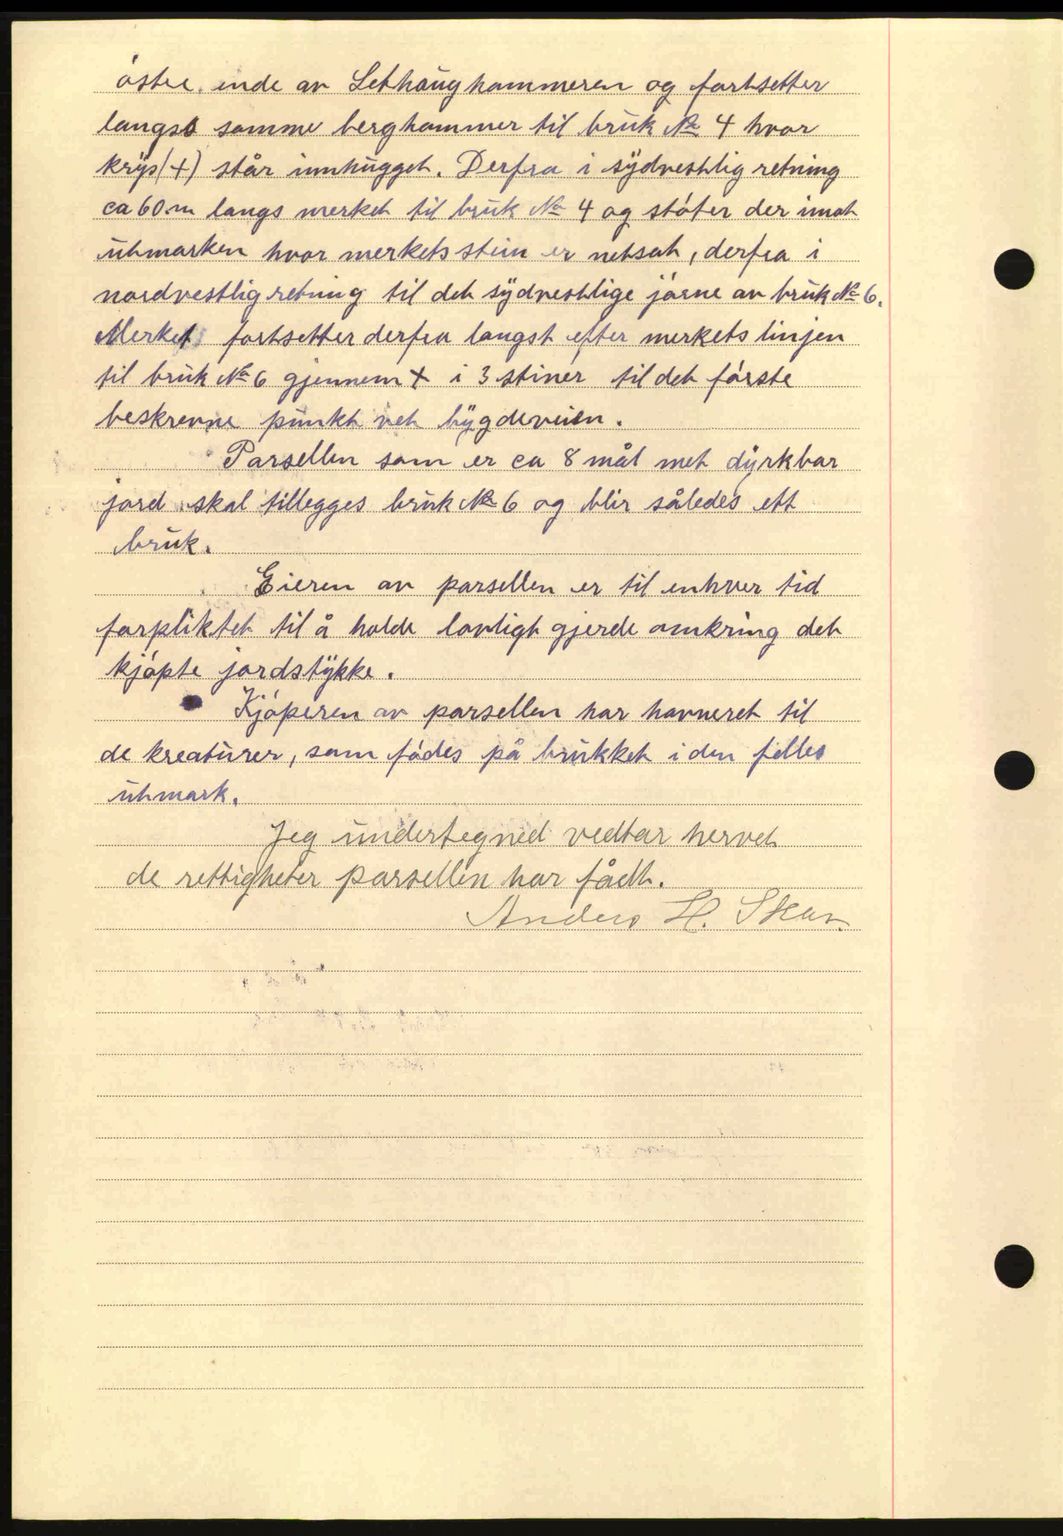 östre ende av Sethaughammeren og fortsetter
langs samme berghammer til bruk No 4 hvor
kryss (+) står innhugget. Derfra i sydvestlig retning
ca 60 m langs merket til bruk No 4 og støter der imot
utmarken hvor merkets stein er netsat, derfra i
nordvestlig retning til det sydvestlige jórne av bruk No 6.
Merket fortsetter derfra langst efter merkets linjen
til bruk No 6 gjennem + i 3 stiner til det første
beskrevne punkt vet bygdeveien.
Parsellen som er ca 8 mål met dyrkbar
jord skal tillegges bruk No 6 og blir således ett
bruk.
Eieren av parsellen er til enhver tid
forpliktet til å holde lovligt gjerde omkring det
kjøpte jordstykke.
Kjøperen av parsellen har havneret til
de kreaturer, som fødes på brukket i den felles
utmark.
Jeg undertegned vedtar hervet
de rettigheter parsellen har fådt.
Anders H. Skar.